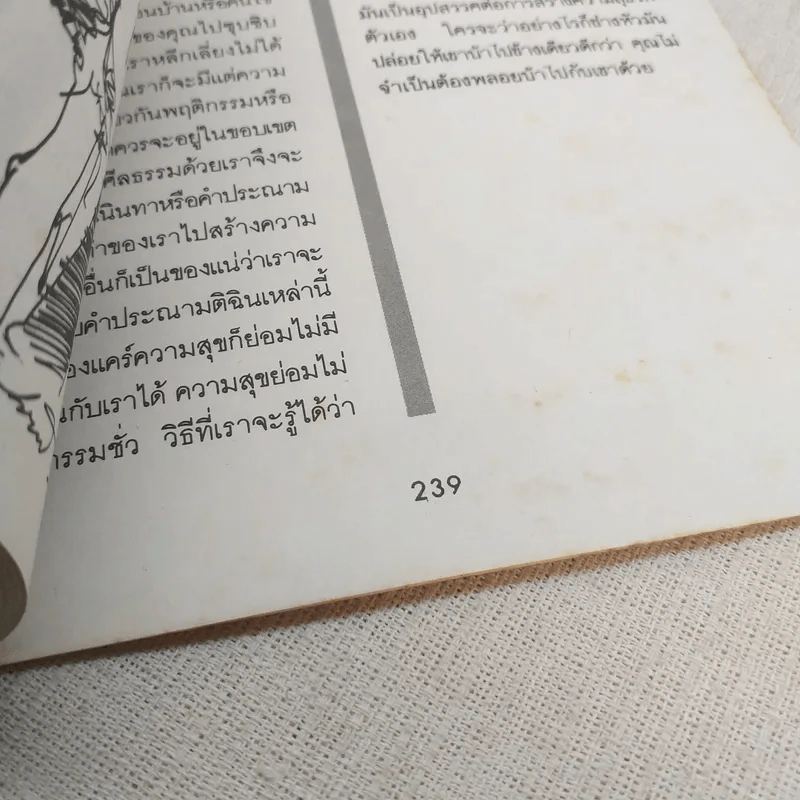 ของคุณไปซุบซิบ
ราหลีกเลี่ยงไม่ได้
นเราก็จะมีแต่ความ
ยวกันพฤติกรรมหรือ
ควรจะอยู่ในขอบเขต
ศีลธรรมด้วยเราจึงจะ
นินทาหรือคำประณาม
ของเราไปสร้างความ
อื่นก็เป็นของแน่ว่าเราจะ
คำประณามติฉินเหล่านี้
องแคร์ความสุขก็ย่อมไม่มี
นกับเราได้ ความสุขย่อมไม่
กรรมชั่ว วิธีที่เราจะรู้ได้ว่า
มันเป็นอุปสรรคต่อการสร้างความสุข
ตัวเอง ใครจะว่าอย่างไรก็ช่างหัวมัน
ปล่อยให้เขาบ้าไปข้างเดียวดีกว่า คุณไม่
จำเป็นต้องพลอยบ้าไปกับเขาด้วย
239